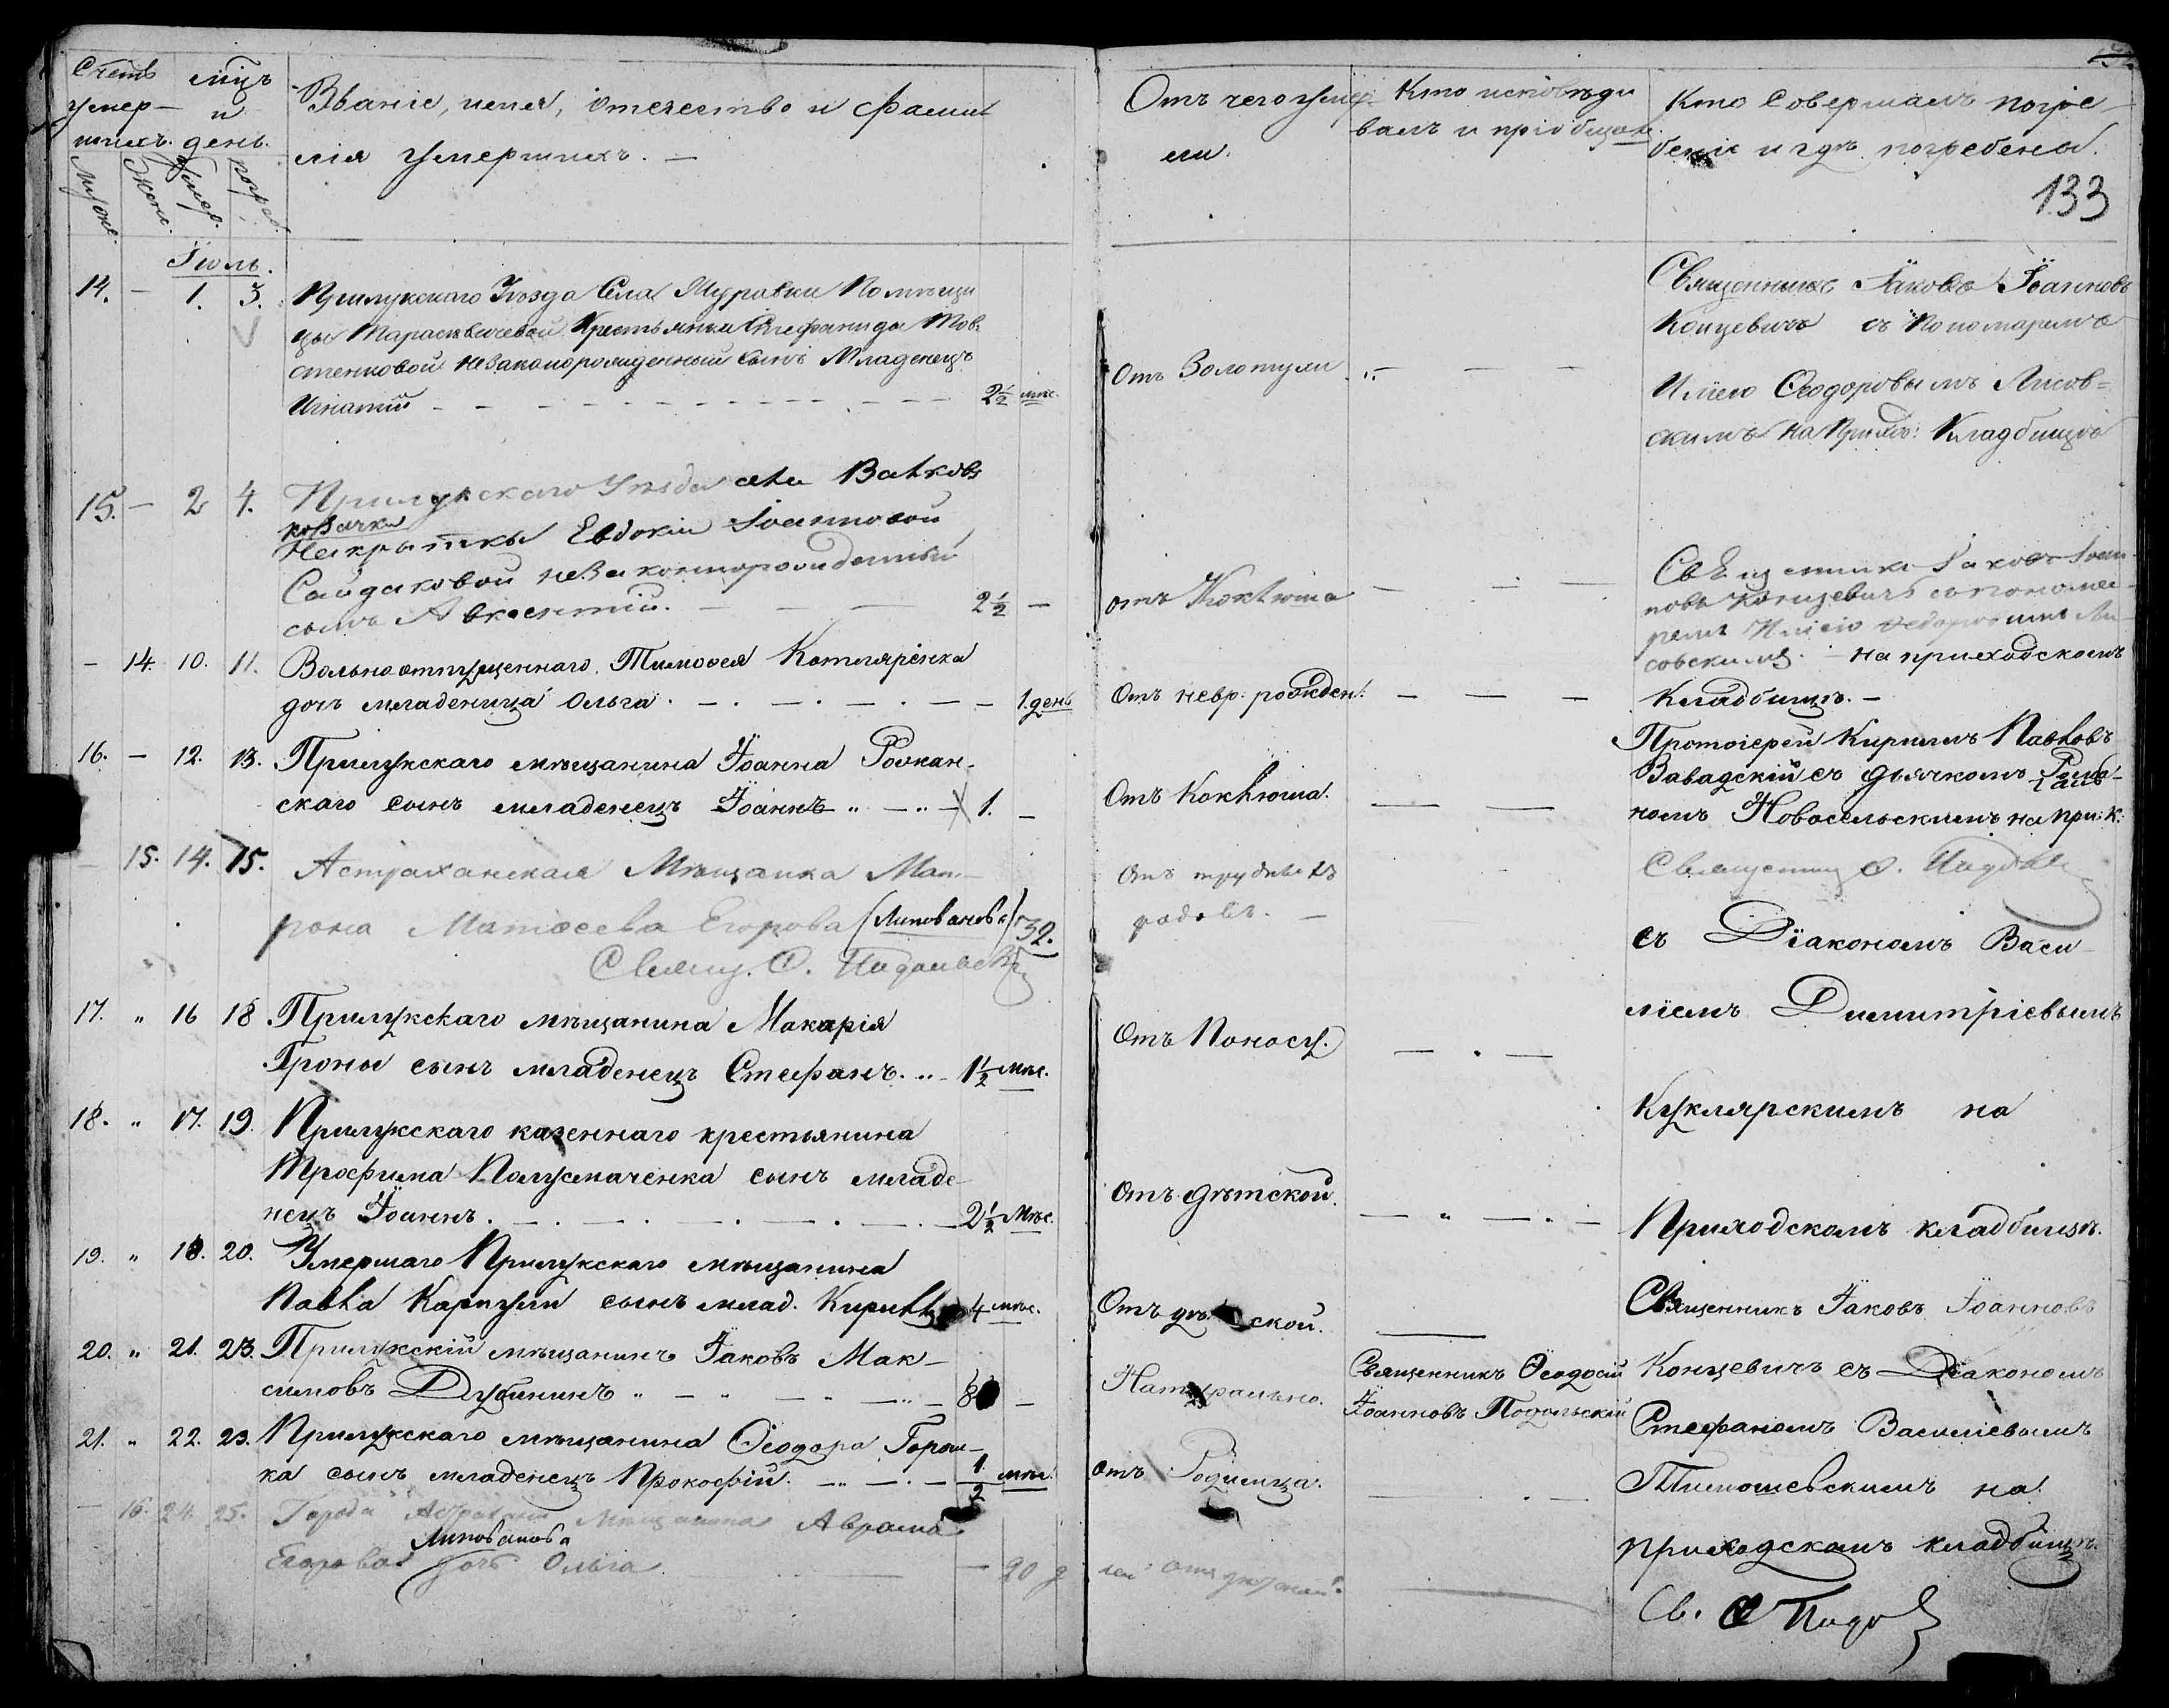 Счетъ умер-
шихъ.
Мцъ и
день.
Званіе, имя, отечество и фами
лія умершихъ. —
Мужс.
Женс.
Умер.
погреб.
Отъ чего умер-
ли.
Кто исповѣды
валъ и пріобщалъ.
Кто совершалъ погре
беніе и гдѣ погребены.
133
Іюль.
14. — 1. 3. Прилукскаго Уѣзда Села Муровки Помѣщи
цы Тарасевичевой Крестьянки Стефаниды Тов
стенковой незаконорожденный сынъ Младенецъ
Игнатій — 2½ мѣс.
Отъ Золотухи
Священникъ Іаковъ Іоанновъ
Концевичъ съ Пономаремъ
Иліею Ѳеодоровымъ Лисов=
скимъ на Прихо: Кладбищѣ
15. — 2 4. Прилукскаго Уѣзда села Валковъ
козачки
Накрытки Евдокіи Іоанновой
Сайдаковой незаконнорожденный
сынъ Авксентій. — 2½ —
отъ Коклюша
Священникъ Іаковъ Іоан
новъ Концевичъ съ понома
ремъ Иліею Ѳедоровымъ Ли
совскимъ. на приходскомъ
— 14. 10. 11. Вольноотпущеннаго Тимоѳея Котляренка
дочь младеница Ольга. — 1. день
Отъ невр: рожден:
Кладбищѣ. —
16. — 12. 13. Прилукскаго мѣщанина Іоанна Рожан-
скаго сынъ младенецъ Іоаннъ 1. —
Отъ Коклюша.
Протоіерей Кириллъ Павловъ
Завадскій съ дьячкомъ
номъ Новосельскимъ на при: к:
— 15. 14. 15. Астраханская Мѣщанка Мат-
рона Матѳеева Егорова (Липованова) 32.
Свящ. Ѳ. Подольскій
Отъ трудныхъ
родовъ. —
Священникъ Ѳ. Подол
съ Діакономъ Васи
ліемъ Димитріевымъ
17. „ 16 18 Прилукскаго мѣщанина Макарія
Троны сынъ младенецъ Стефанъ. 1½ мѣс.
Отъ Поносу.
18. „ 17. 19. Прилукскаго казеннаго крестьянина
Трофима Полусмаченка сынъ младе
нецъ Іоаннъ. 2½ Мѣс.
Отъ дѣтской.
Куклярскимъ на
Приходскомъ кладбищѣ.
19. „ 18. 20. Умершаго Прилукскаго мѣщанина
Павла сынъ млад. Кириллъ 4 мѣс.
Отъ дѣ ской.
Священникъ Іаковъ Іоанновъ
20. „ 21. 23. Прилукскій мѣщанинъ Іаковъ Мак-
симовъ Дубининъ
Натурально.
Священникъ Ѳеодосій
Іоанновъ Подольскій
Концевичъ съ Діакономъ
Стефаномъ Василіевымъ
21. „ 22. 23. Прилукскаго мѣщанина Ѳеодора Горош-
ка сынъ младенецъ Прокофій. ½ мѣс.
отъ Родимца.
Тимошевскимъ на
приходскомъ кладбищѣ.
— 16. 24. 25. Города Астрахани Мѣщанина Аврама
Липованова
Егорова дочь Ольга — 20 д
Св. Ѳ Подол